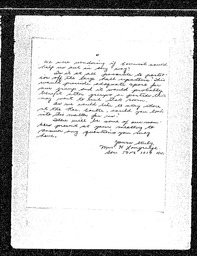 We are wondering if Council could
help us out in any way?
Is it at all possible to partit-
ion off the large hall upstairs? This
would provide adequate space for
our group and it would probably
benefit other groups or parties that
may want to book that room.
As we would like to stay there
at the Rec Centre, would you look
into the matter for us?
There will be some of our mem-
bers present at your meeting to
answer any questions you may
have.
Yours truly,
Mrs. H.